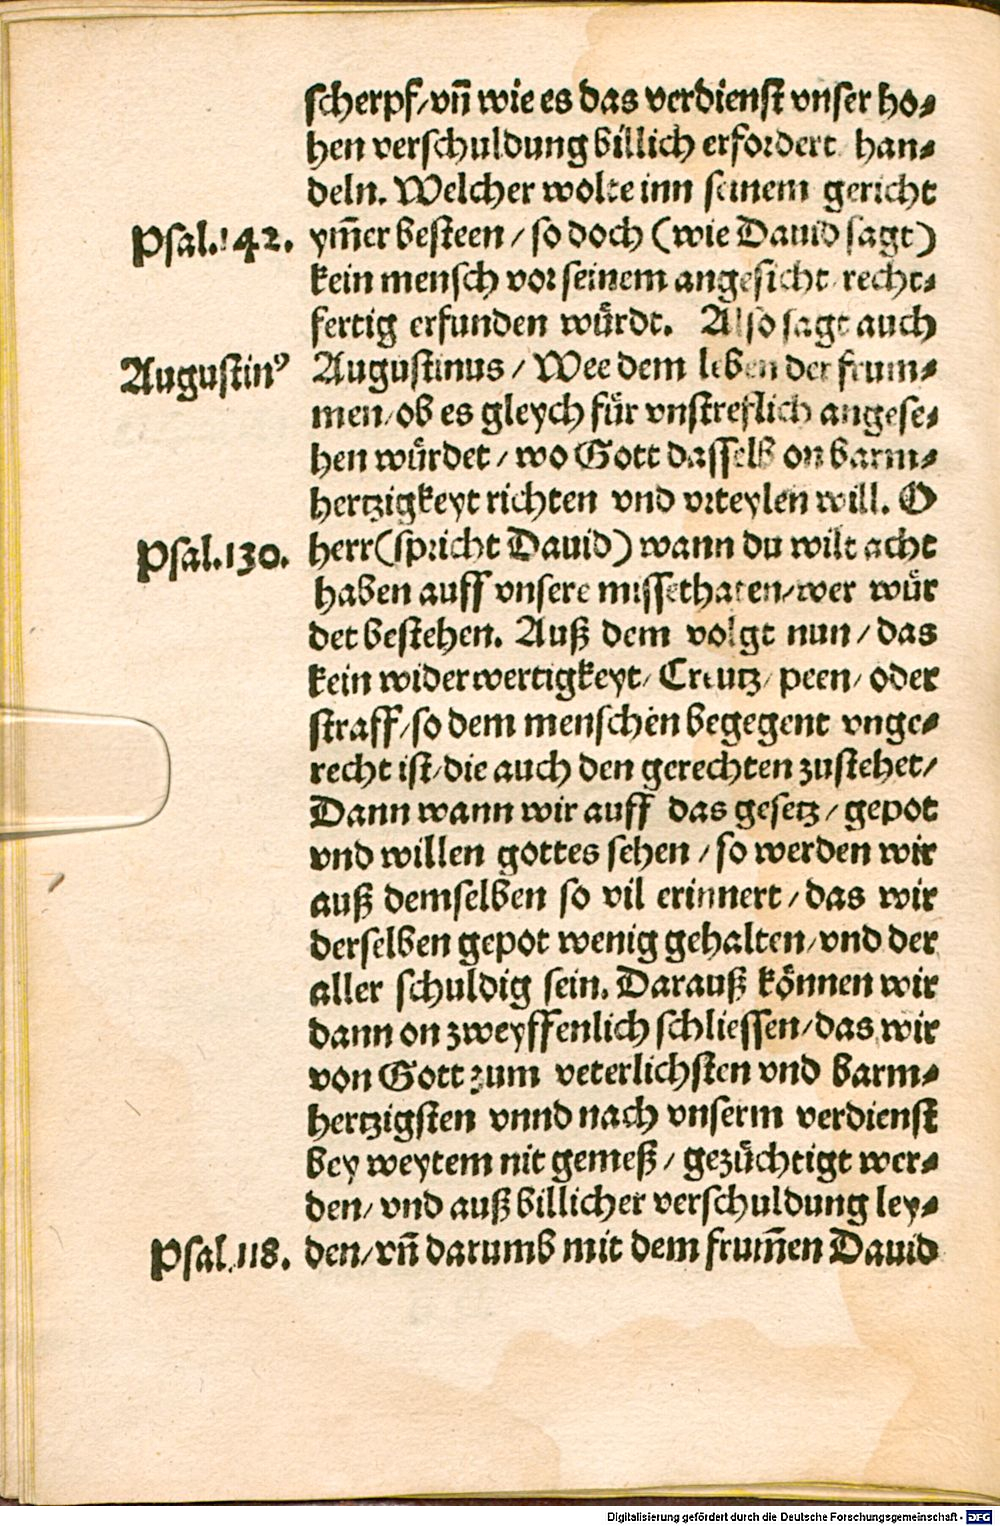 scherpf/vñ wie es das verdienst vnser ho⸗
hen verschuldung billich erfordert han⸗
deln. Welcher wolte inn seinem gericht
Psal.142. ym̃er besteen / so doch (wie Dauid sagt)
kein mensch vor seinem angesicht recht⸗
fertig erfunden wuͤrdt. Also sagt auch
Augustinꝰ Augustinus / Wee dem leben der frum⸗
men/ob es gleych fuͤr vnstreflich angese⸗
hen wuͤrdet / wo Gott dasselb on barm⸗
hertzigkeyt richten vnd vrteylen will. O
Psal.130. herr(spricht Dauid) wann du wilt acht
haben auff vnsere missethaten/wer wuͤr
det bestehen. Auß dem volgt nun / das
kein widerwertigkeyt/ Creutz/ peen/ oder
straff/so dem menschen begegent vnge⸗
recht ist/die auch den gerechten zustehet/
Dann wann wir auff das gesetz / gepot
vnd willen gottes sehen / so werden wir
auß demselben so vil erinnert / das wir
derselben gepot wenig gehalten/vnd der
aller schuldig sein. Darauß koͤnnen wir
dann on zweyffenlich schliessen/das wir
von Gott zum veterlichsten vnd barm⸗
hertzigsten vnnd nach vnserm verdienst
bey weytem nit gemeß / gezuͤchtigt wer⸗
den/ vnd auß billicher verschuldung ley⸗
Psal.118. den/vñ darumb mit dem frum̃en Dauid
Digitalisierung gefördert durch die Deutsche Forschungsgemeinschaft - DFG